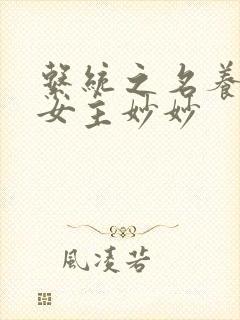 繫統之名養
女主妙妙
風凌若